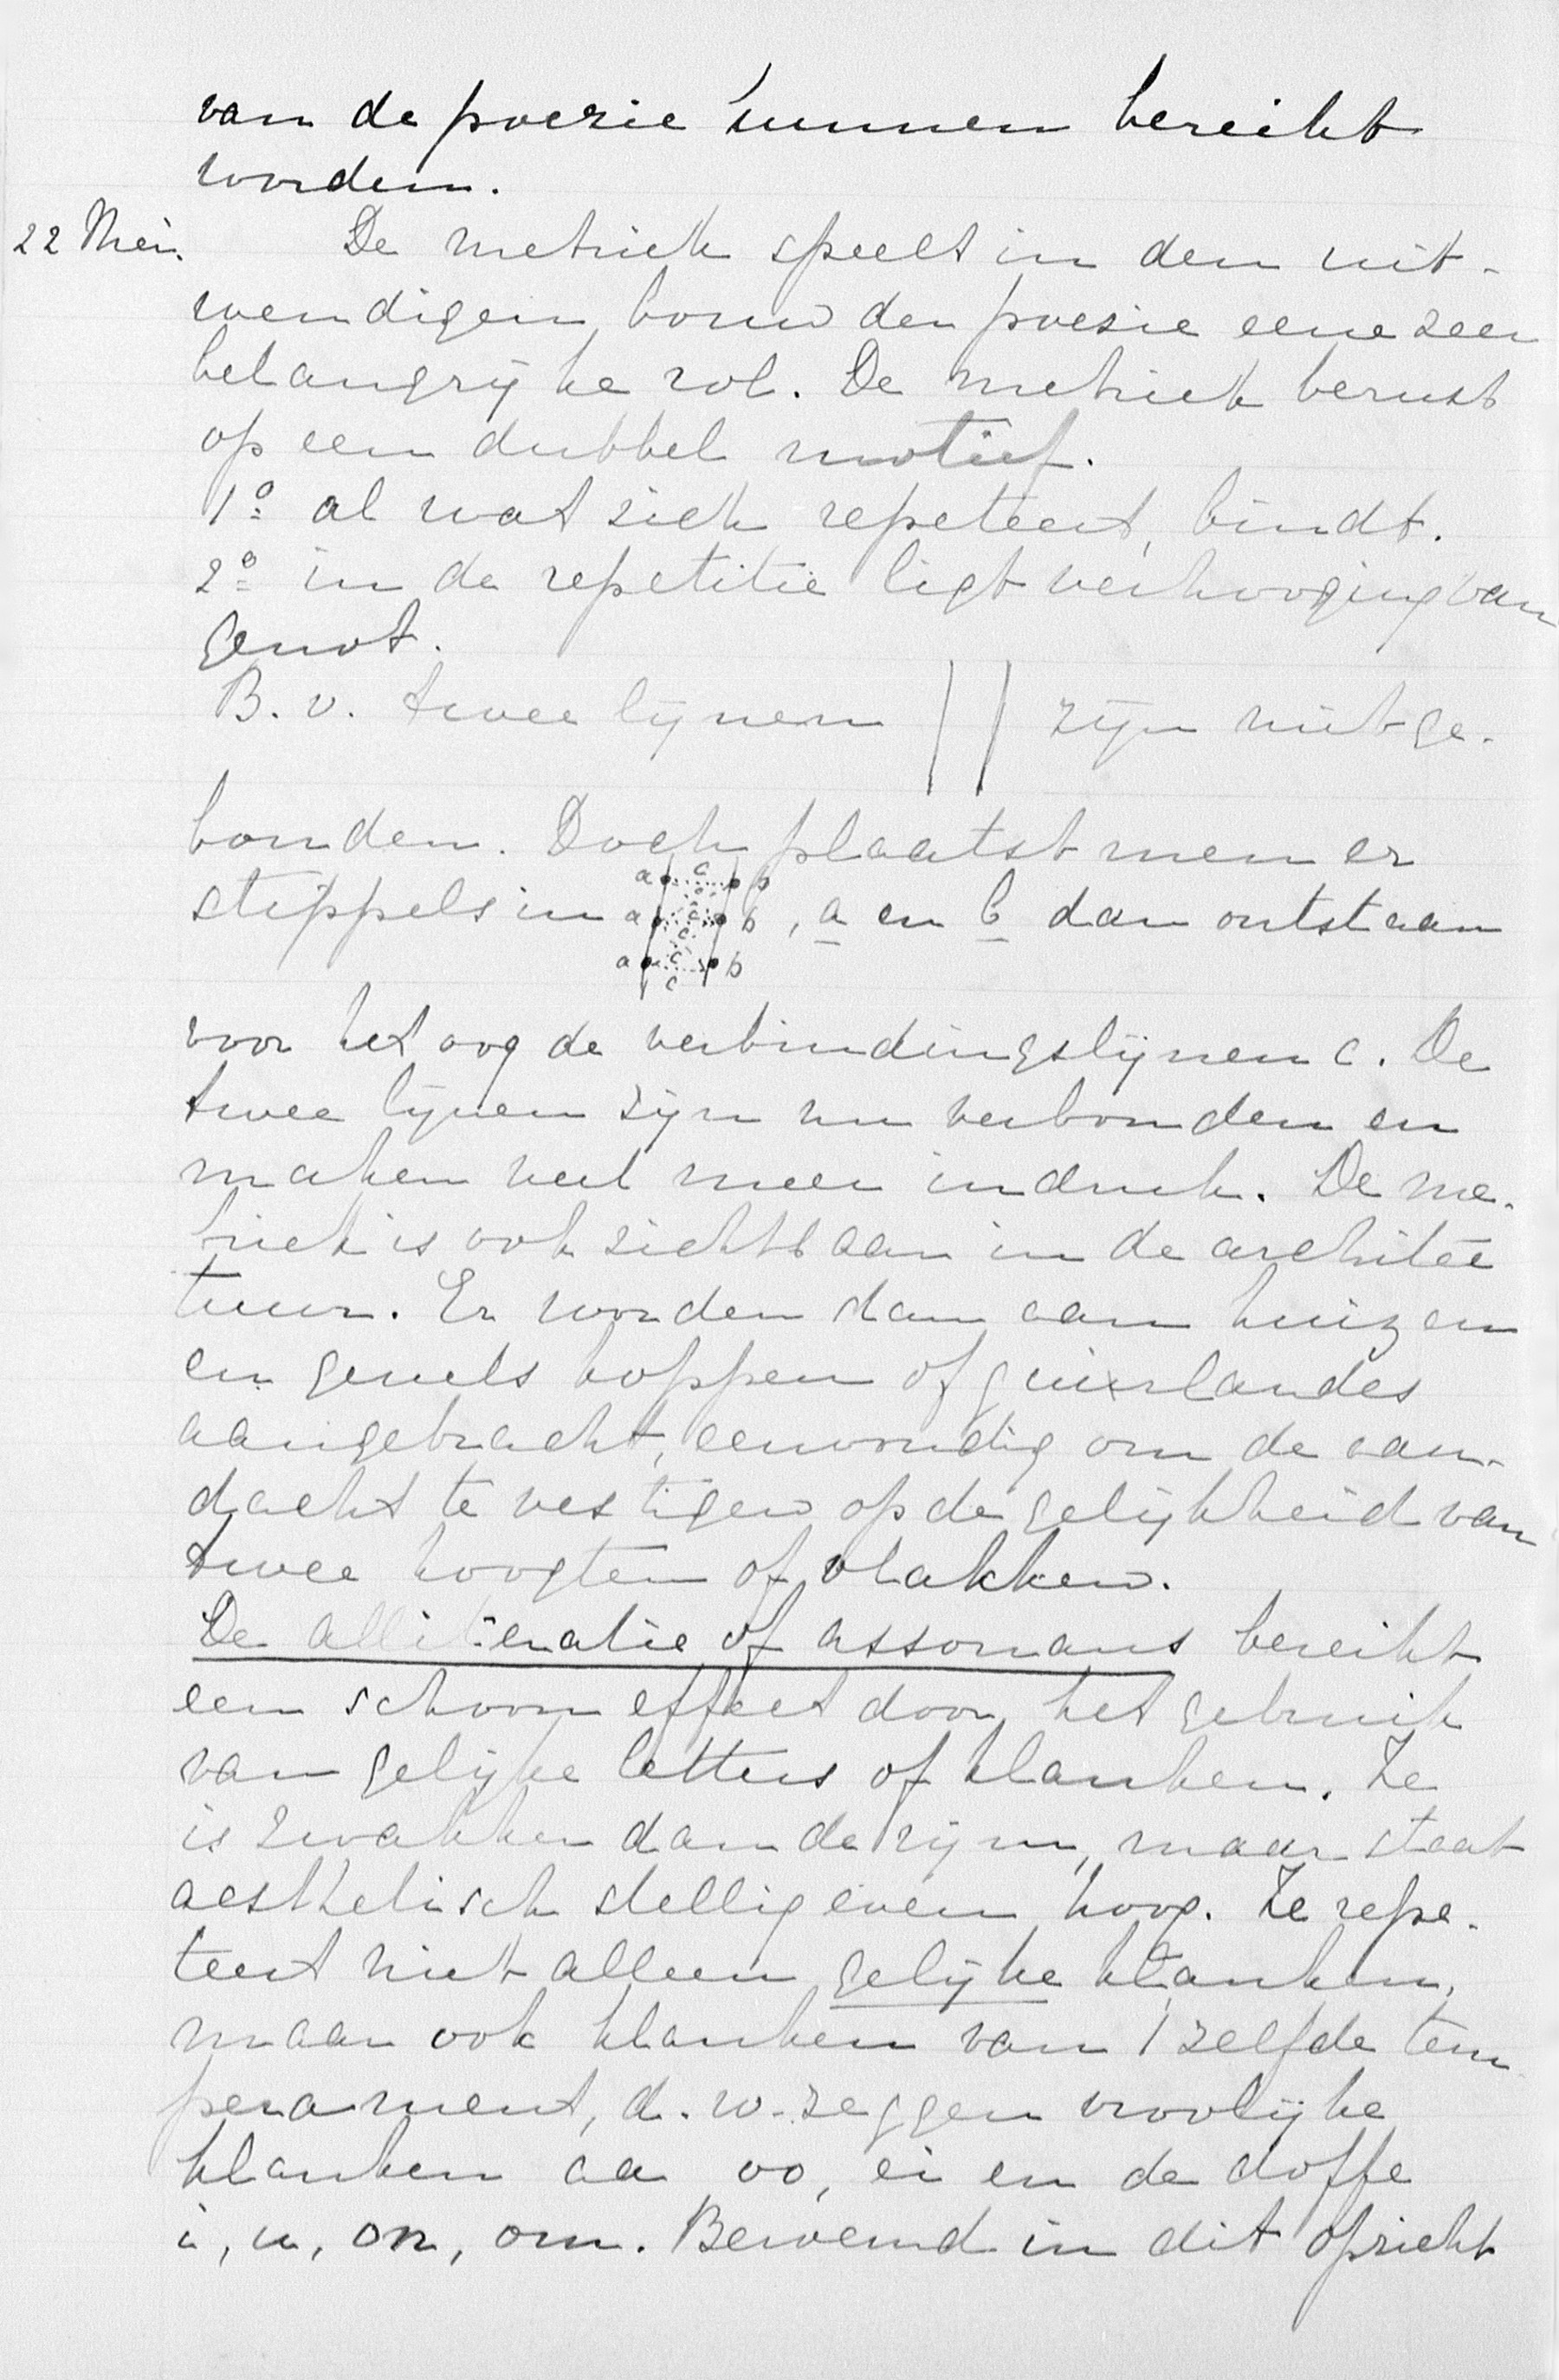 van de poezie kunnen bereikt
worden.
22 Mei. De metriek speelt in den uit-
wendigen bouw der poesie eene zeer
belangrijke rol. De metriek berust
op een dubbel motief.
1º al wat zich repeteert, bindt.
2º in de repetitie ligt verhooging van
genot.
B. v. twee lijnen || zijn niet ge-
bonden. Doch plaatst men er
a c b
stippels in a c b , a en b dan ontstaan
c
a c b
c
voor het oog de verbindingslijnen c. De
twee lijnen zijn nu verbonden en
maken veel meer indruk. De me-
triek is ook zichtbaar in de architec
tuur. Er worden dan aan huizen
en gevels koppen of guirlandes
aangebracht, eenvoudig om de aan-
dacht te vestigen op de gelijkheid van
twee hoogten of vlakken.
De alliteratie of assonans bereikt
een schoon effect door het gebruik
van gelijke letters of klanken. Ze
is zwakker dan de rijm, maar staat
aesthetisch stellig even hoog. Ze repe-
teert niet alleen gelijke klanken,
maar ook klanken van 1 zelfde tem
perament, d. w. zeggen vroolijke
klanken aa oo, ei en de doffe
i, u, on, om. Beroemd in dit opzicht